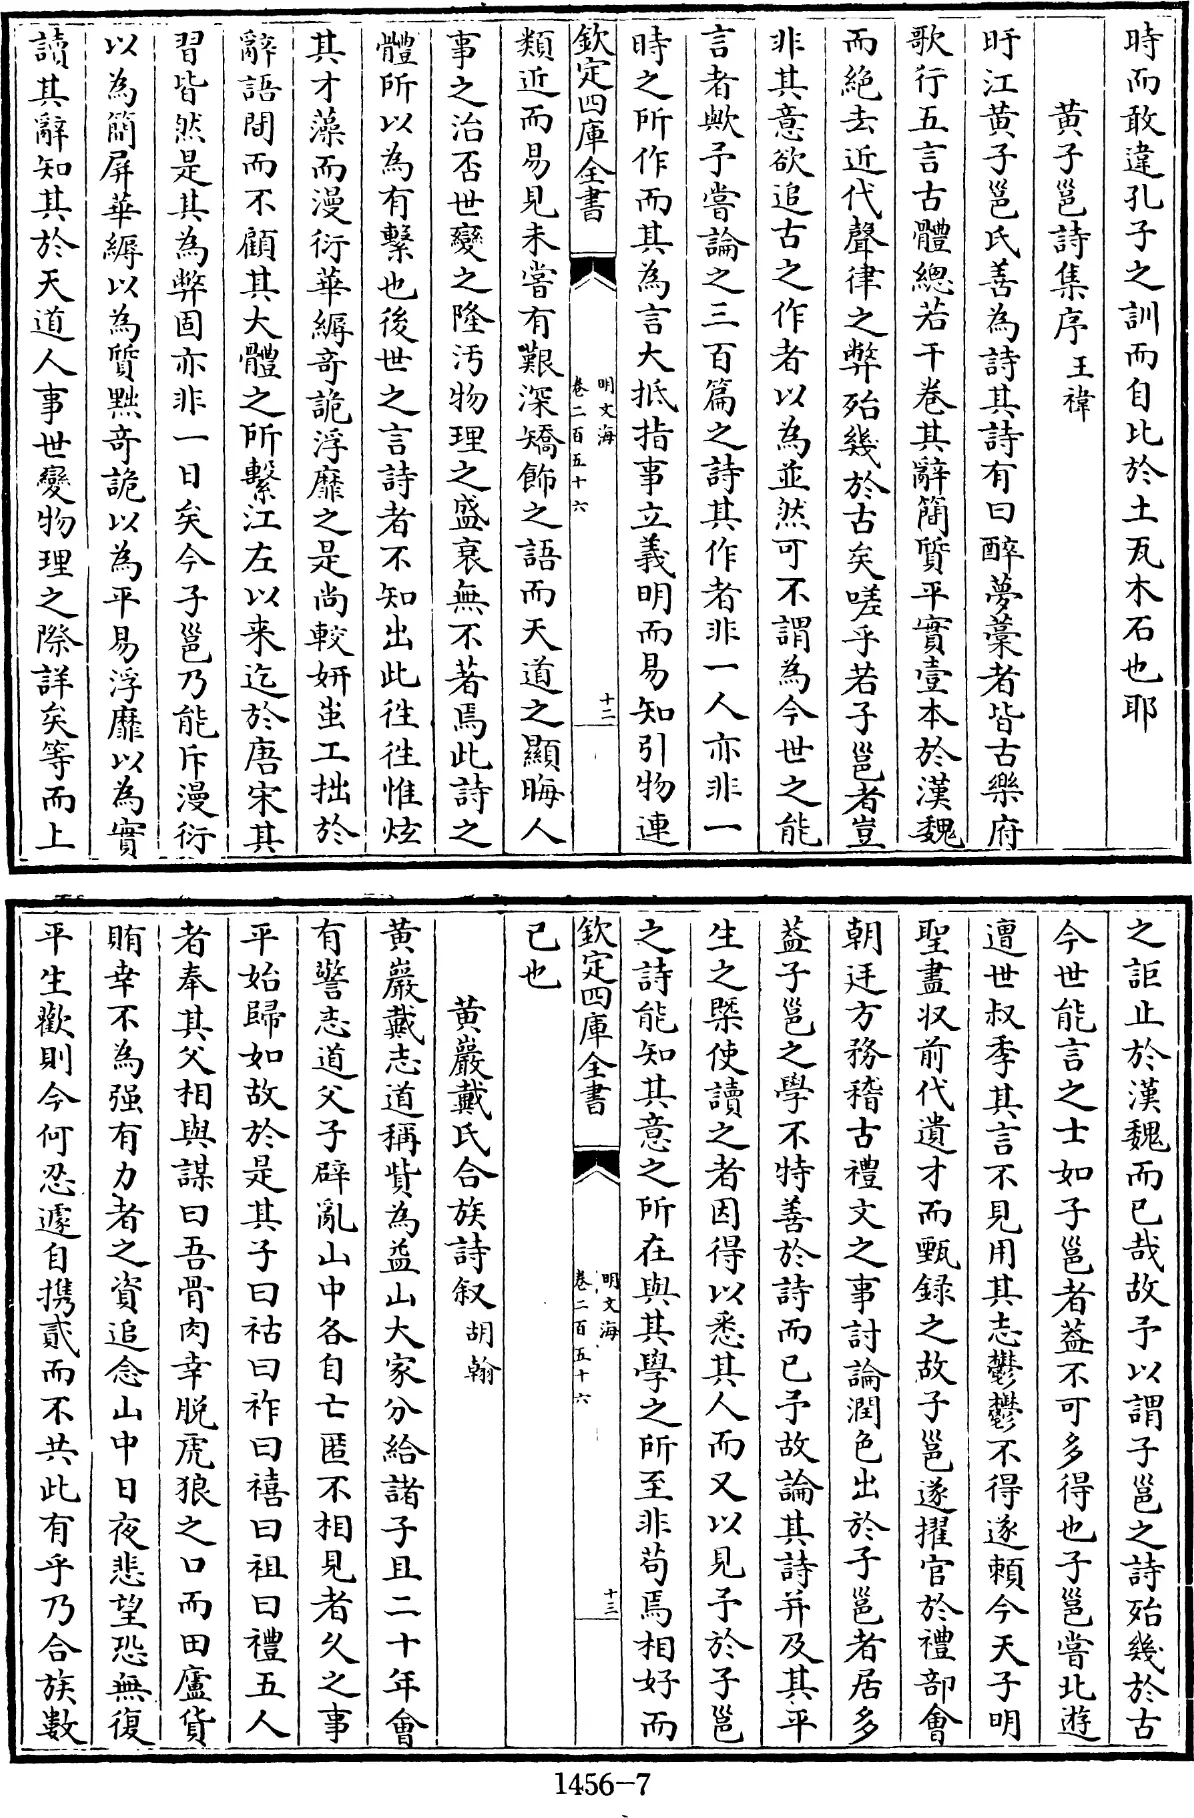 時而敢違孔子之訓而自比於土瓦木石也耶
黄子邕詩集序 王褘
盱江黄子邕氏善為詩其詩有曰醉夢藁者皆古樂府
歌行五言古體總若干卷其辭簡質平實壹本於漢魏
而絶去近代聲律之弊殆幾於古矣嗟乎若子邕者豈
非其意欲追古之作者以為並然可不謂為今世之能
言者歟予嘗論之三百篇之詩其作者非一人亦非一
時之所作而其為言大抵指事立義明而易知引物連
欽定四庫全書
明文海
卷二百五十六
十二
類近而易見未嘗有艱深矯飾之語而天道之顯晦人
事之治否世變之隆汚物理之盛衰無不著焉此詩之
體所以為有繫也後世之言詩者不知出此往往惟炫
其才藻而漫衍華縟奇詭浮靡之是尚較妍蚩工拙於
辭語間而不顧其大體之所繫江左以来迄於唐宋其
習皆然是其為弊固亦非一日矣今子邕乃能斥漫衍
以為簡屏華縟以為質黜奇詭以為平易浮靡以為實
讀其辭知其於天道人事世變物理之際詳矣等而上
之詎止於漢魏而已哉故予以謂子邕之詩殆幾於古
今世能言之士如子邕者葢不可多得也子邕嘗北遊
遭世叔季其言不見用其志鬱鬱不得遂頼今天子明
聖盡収前代遺才而甄録之故子邕遂擢官於禮部會
朝廷方務稽古禮文之事討論潤色出於子邕者居多
葢子邕之學不特善於詩而已予故論其詩并及其平
生之槩使讀之者因得以悉其人而又以見予於子邕
之詩能知其意之所在與其學之所至非苟焉相好而
欽定四庫全書
明文海
卷二百五十六
十三
已也
黄巖戴氏合族詩叙 胡翰
黄巖戴志道稱貲為益山大家分給諸子且二十年會
有警志道父子辟亂山中各自亡匿不相見者久之事
平始歸如故於是其子曰祜曰祚曰禧曰祖曰禮五人
者奉其父相與謀曰吾骨肉幸脱虎狼之口而田廬貨
賄幸不為强有力者之資追念山中日夜悲望恐無復
平生歡則今何忍遽自携貳而不共此有乎乃合族數
1456-7